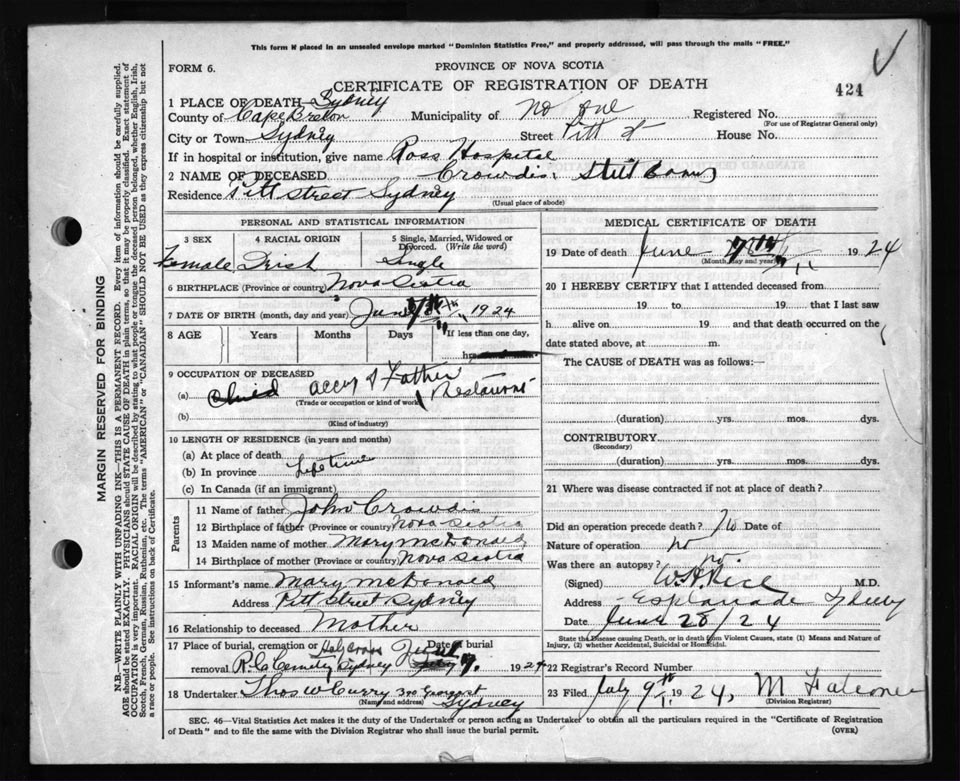 This form if placed in an unsealed envelope marked "Dominion Statistics Free," and properly addressed, will pass through the mails "FREE."
FORM 6.
PROVINCE OF NOVA SCOTIA
CERTIFICATE OF REGISTRATION OF DEATH
424
1 PLACE OF DEATH— Sydney
County of Cape Breton Municipality of Registered No.
(For use of Registrar General only)
City or Town Sydney Street Pitt St House No.
If in hospital or institution, give name Ross Hospital
2 NAME OF DECEASED Crowdis. Still Born
Residence Pitt Street Sydney
(Usual place of abode)
PERSONAL AND STATISTICAL INFORMATION
3 SEX 4 RACIAL ORIGIN 5 Single, Married, Widowed or Divorced. (Write the word)
Female Irish Single
6 BIRTHPLACE (Province or country) Nova Scotia
7 DATE OF BIRTH (month, day and year) June 1924
8 AGE Years Months Days If less than one day,
hrs
9 OCCUPATION OF DECEASED
(a) Occup of Father Restaurant
(Trade or occupation or kind of work)
(b)
(Kind of industry)
10 LENGTH OF RESIDENCE (in years and months)
(a) At place of death
(b) In province Life time
(c) In Canada (if an immigrant)
Parents
11 Name of father John Crowdis
12 Birthplace of father (Province or country) Nova Scotia
13 Maiden name of mother Mary McDonald
14 Birthplace of mother (Province or country) Nova Scotia
15 Informant's name Mary McDonald
Address Pitt Street Sydney
16 Relationship to deceased Mother
17 Place of burial, cremation or removal Holy Cross Date of burial
R.C. Cemetry Sydney 1924
18 Undertaker Thos W Curry Sydney
(Name and address)
MEDICAL CERTIFICATE OF DEATH
19 Date of death June 1924
(Month, day and year)
20 I HEREBY CERTIFY that I attended deceased from
19 to 19 that I last saw
h alive on 19 and that death occurred on the
date stated above, at m.
The CAUSE of DEATH was as follows:—
(duration) yrs. mos. dys.
CONTRIBUTORY
(Secondary)
(duration) yrs. mos. dys.
21 Where was disease contracted if not at place of death?
Did an operation precede death? No Date of
Nature of operation no
Was there an autopsy? no
(Signed) W.A. Rice M.D.
Address Esplanade Sydney
Date June 28/24
State the Disease causing Death, or in death from Violent Causes, state (1) Means and Nature of Injury, (2) whether Accidental, Suicidal or Homicidal.
22 Registrar's Record Number
23 Filed July 9th 1924, M Falconer
(Division Registrar)
SEC. 46—Vital Statistics Act makes it the duty of the Undertaker or person acting as Undertaker to obtain all the particulars required in the "Certificate of Registration
of Death" and to file the same with the Division Registrar who shall issue the burial permit.
(OVER)
MARGIN RESERVED FOR BINDING
N.B.—WRITE PLAINLY WITH UNFADING INK—THIS IS A PERMANENT RECORD. Every item of information should be carefully supplied.
AGE should be stated EXACTLY. PHYSICIANS should STATE CAUSE OF DEATH in plain terms, so that it may be properly classified. Exact statement of
OCCUPATION is very important. RACIAL ORIGIN will be described by stating to what people or tongue the deceased person belonged, whether English, Irish,
Scotch, French, German, Russian, Ruthenian, etc. The terms "AMERICAN" or "CANADIAN" SHOULD NOT BE USED as they express citizenship but not
a race or people. See instructions on back of Certificate.